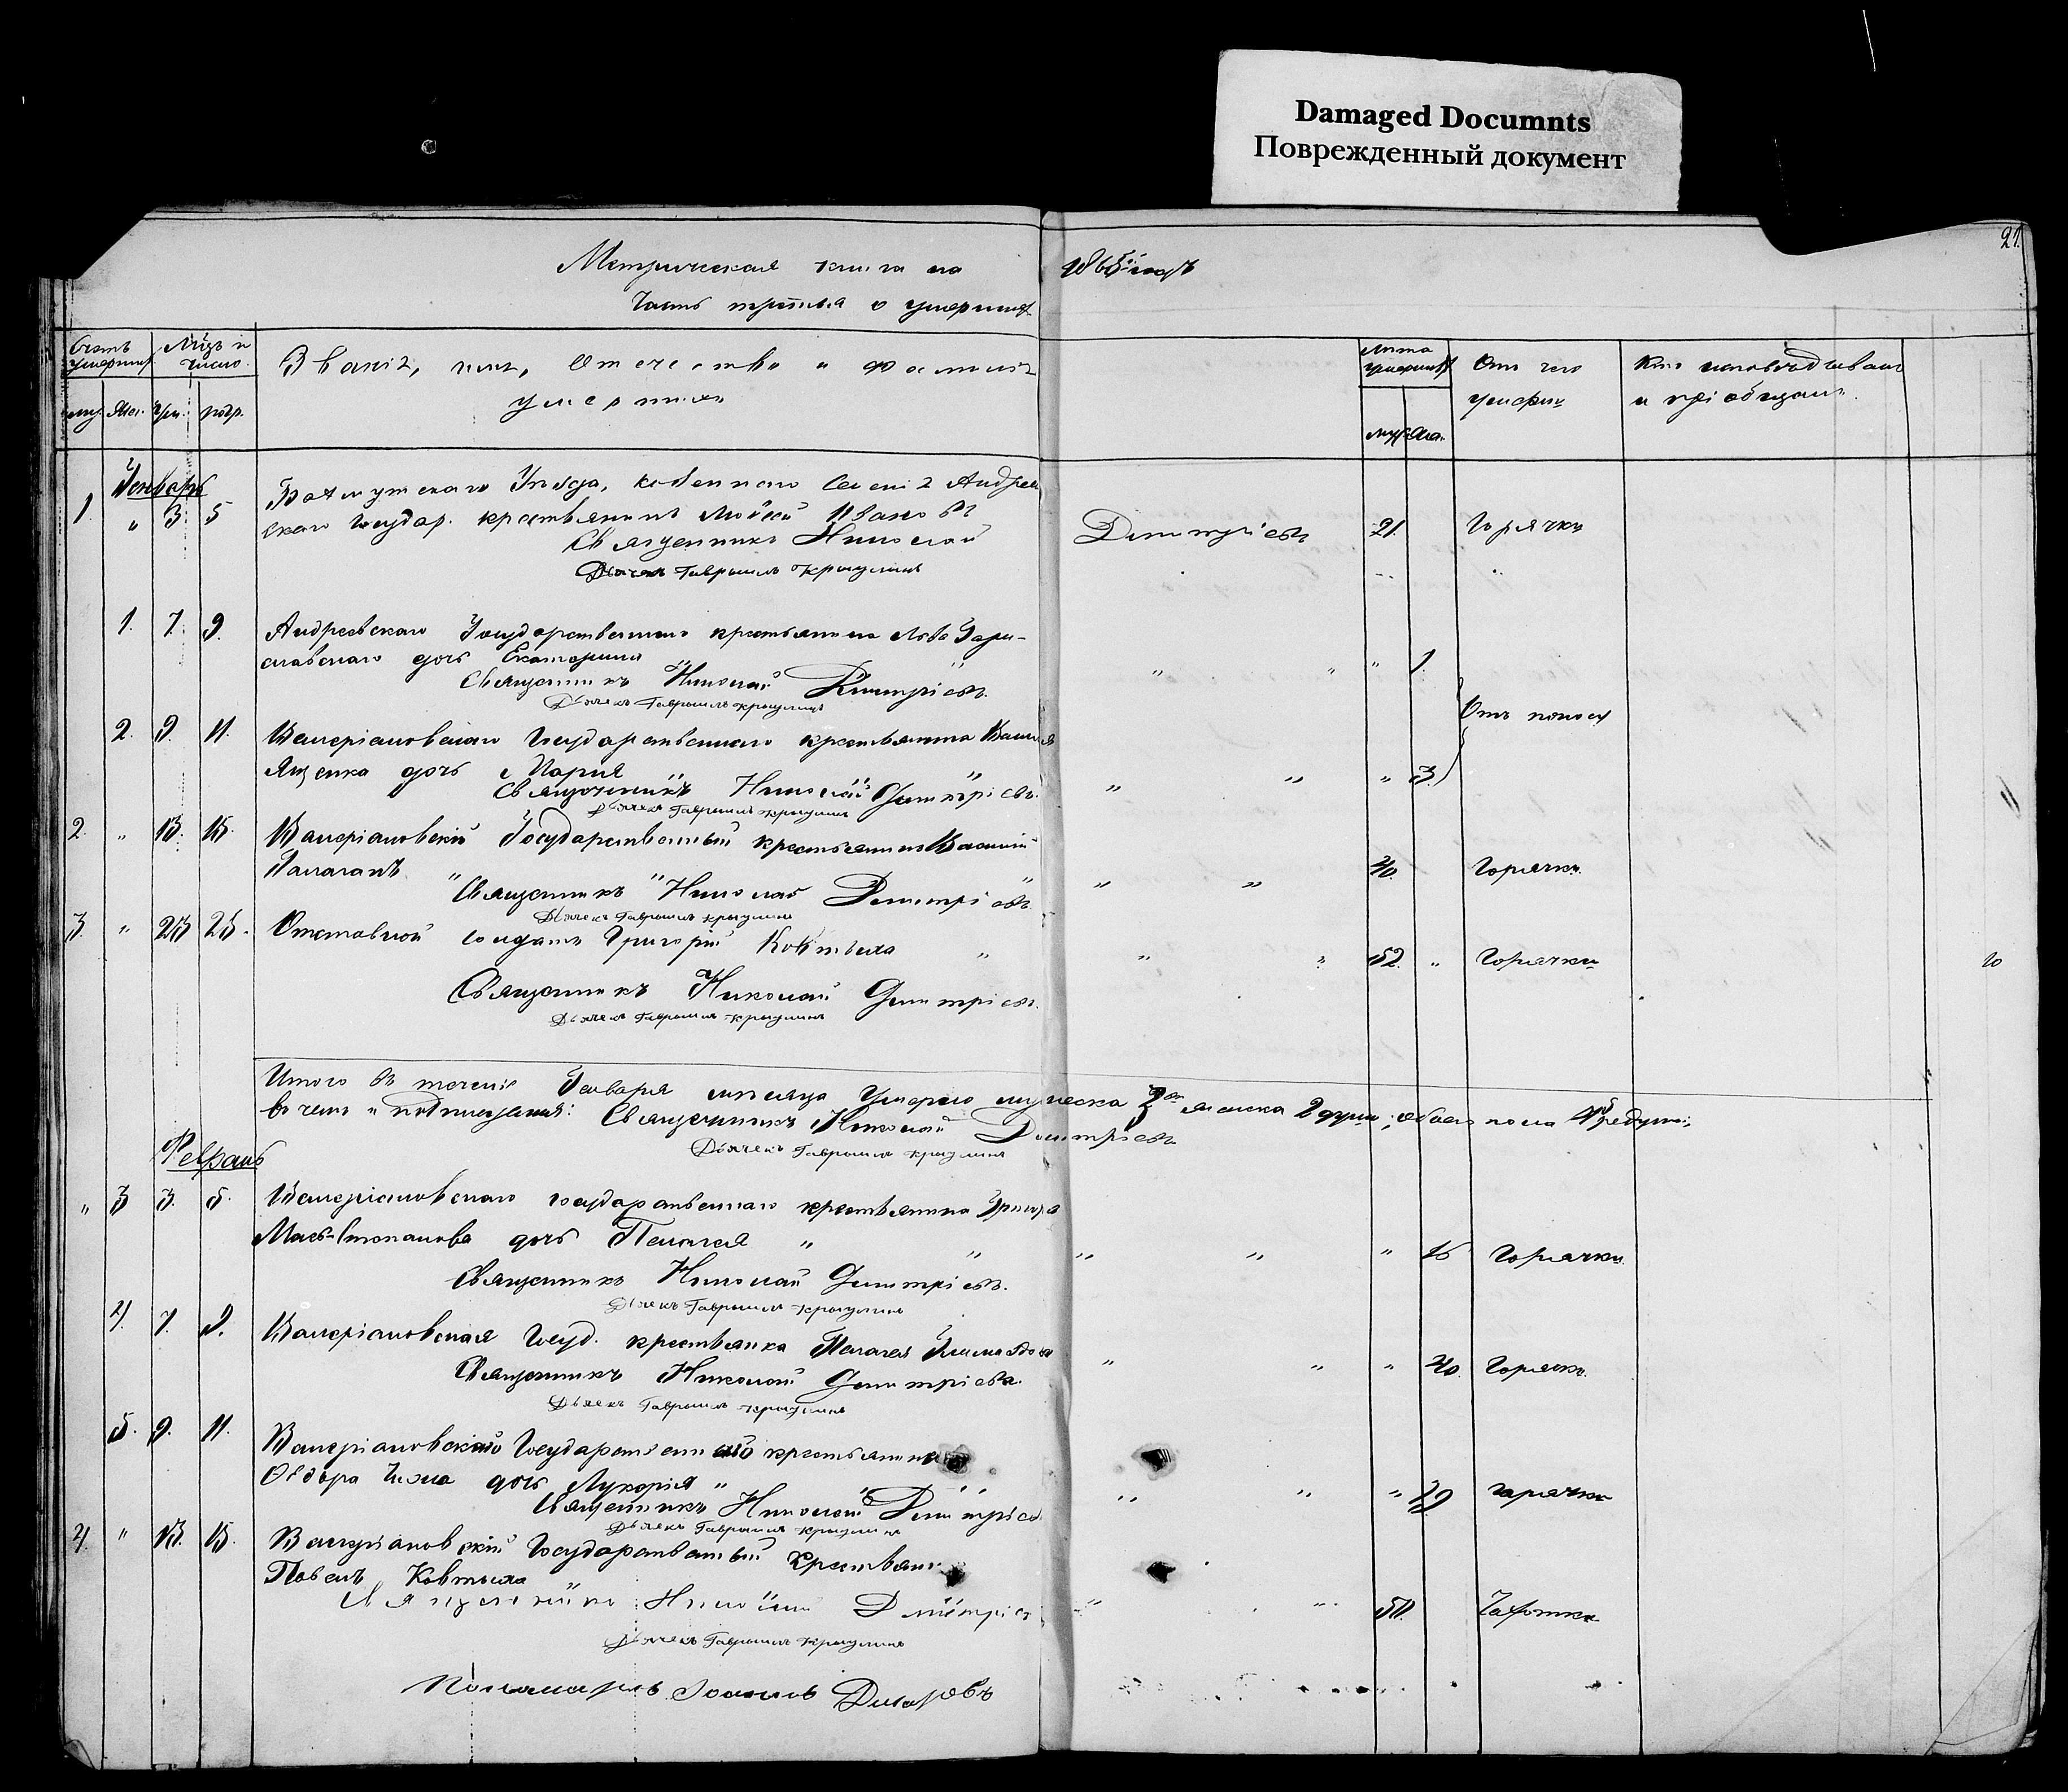 Damaged Documnts
Поврежденный документ
21.
Метрическая книга на 1865й годъ
Часть третья о умершихъ
Счетъ умершихъ
Мѣцъ и число
Званіе, имя, отечество и фамилія умершихъ
Лѣта умершихъ
Отъ чего умеръ
Кто исповѣдывалъ и пріобщалъ
муж. жен. ум. погр.
муж. жен.
Январь
1 " 3. 5 Бахмутскаго Уѣзда, казеннаго селенія Андреев
скаго государ. крестьянинъ Мойсей Ивановъ 21. Горячки
Священникъ Николай Димитріевъ
Дьячекъ Гавріилъ Крыулинъ
1. 7. 9. Андреевскаго Государственнаго крестьянина
славскаго дочь Екатерина " " " 1.
Священникъ Николай Димитріевъ
Дьячекъ Гавріилъ Крыулинъ
Отъ поноса
2. 9. 11. Валеріановскаго Государственнаго крестьянина
Яценка дочь Марія " " " 3.
Священникъ Николай Димитріевъ
Дьячекъ Гавріилъ Крыулинъ
2. " 13. 15. Валеріановскій Государственный крестьянинъ Василій
Палагапъ " " 40. Горячки
Священникъ Николай Димитріевъ
Дьячекъ Гавріилъ Крыулинъ
3. " 23 25. Отставной солдатъ Григорій Ковтыха " " " 52. " Горячки
Священникъ Николай Димитріевъ
Дьячекъ Гавріилъ Крыулинъ
20
Итого въ теченіе Января мѣсяца умерло мужеска 3 женска 2 души; обоего пола
въ чемъ и подписуемся: Священникъ Николай Димитріевъ
Дьячекъ Гавріилъ Крыулинъ
Февраль
" 3 3. 5. Валеріановскаго государственнаго крестьянина
дочь Пелагея " " " " " 16 Горячки
Священникъ Николай Димитріевъ.
Дьячекъ Гавріилъ Крыулинъ
4. 7. 9. Валеріановская Госуд. крестьянка Пелагея " " " 40. Горячк.
Священникъ Николай Димитріевъ.
Дьячекъ Гавріилъ Крыулинъ
5. 9. 11. Валеріановскаго Государственнаго крестьянина
Ѳедора дочь Лукерія " " " " горячки
Священникъ Николай Димитріев
Дьячекъ Гавріилъ Крыулинъ
4. " 13. 15. Валеріановскій Государственный крестьян
Павелъ Ковтыха " " 50. Чахотки
Священникъ Николай Димитріев
Дьячекъ Гавріилъ Крыулинъ
Пономарь Іоаннъ